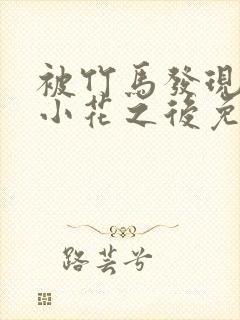 被竹馬發現
小花之後免
路芸兮